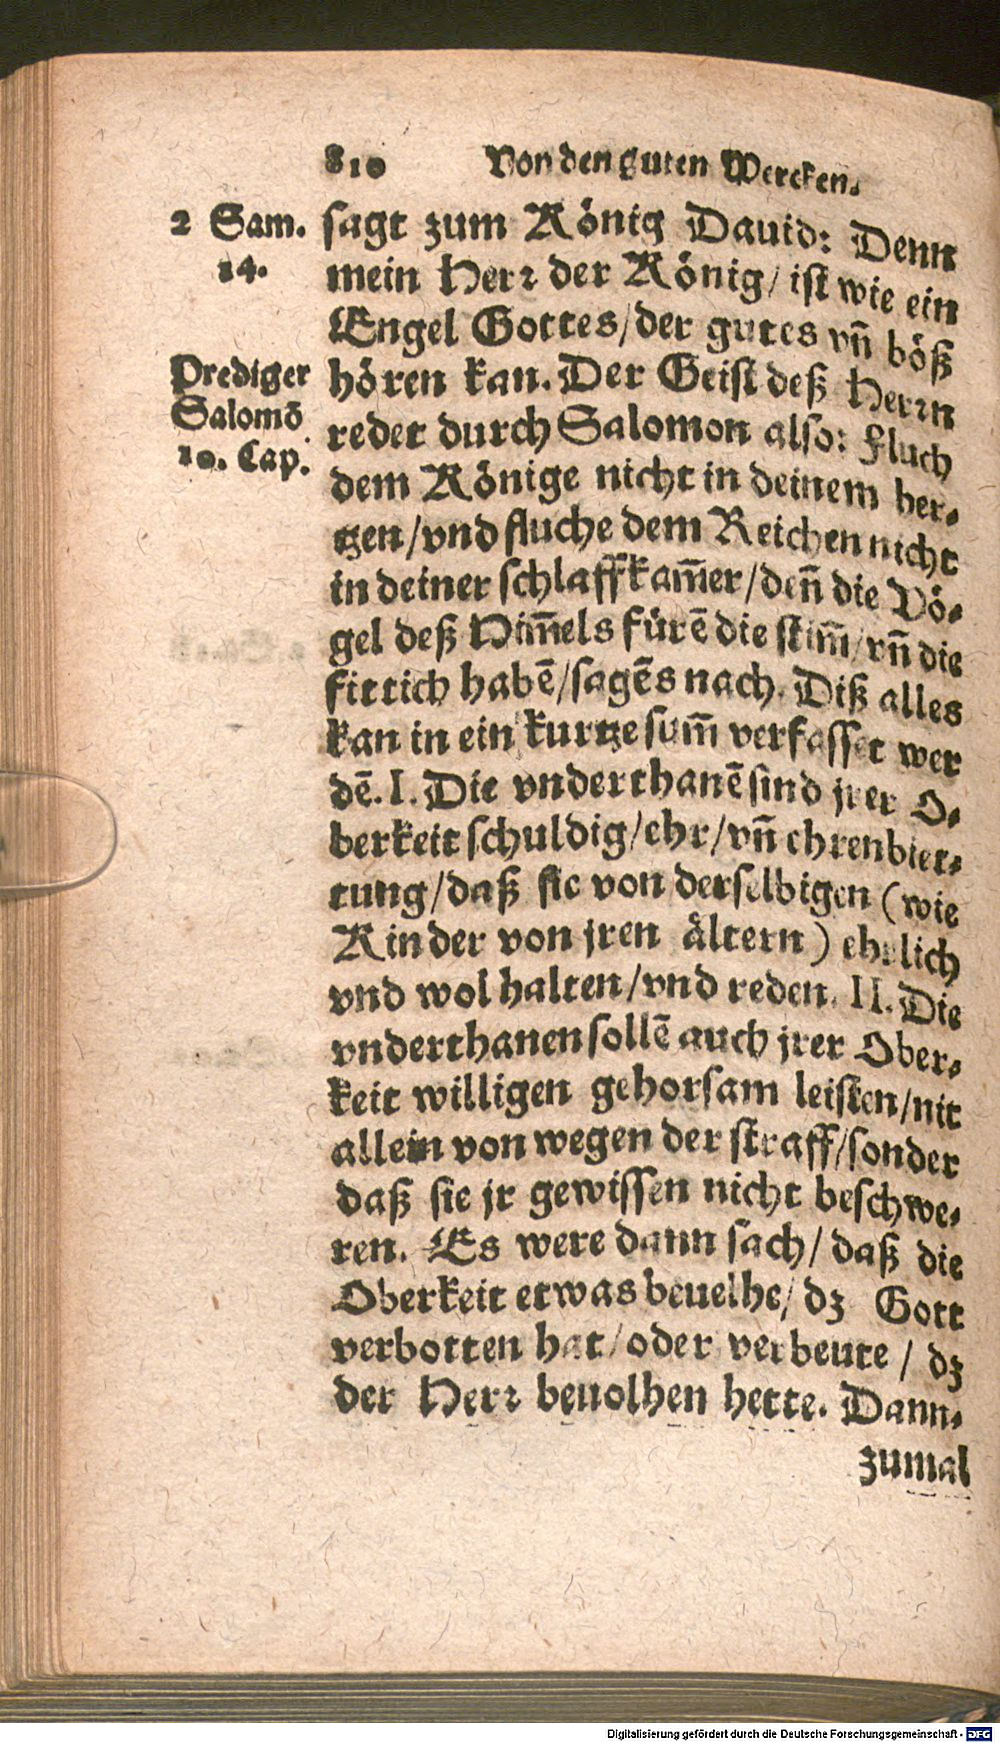 810 Von den guten Wercken.
2 Sam.
14.
sagt zum König Dauid: Denn
mein Herr der König/ ist wie ein
Engel Gottes/der gutes vñ böß
Prediger
Salomō
10. Cap.
hören kan. Der Geist deß Herrn
redet durch Salomon also: Fluch
dem Könige nicht in deinem her-
tzen/vnd fluche dem Reichen nicht
in deiner schlaffkam̄er/den̄ die Vö-
gel deß Him̄els fürē die stim̄/vn̄ die
fittich habē/sagēs nach. Diß alles
kan in ein kurtze sum̄ verfasset wer
dē. I. Die vnderthanē sind jrer O-
berkeit schuldig/ehr/vn̄ ehrenbiet-
tung/daß sie von derselbigen (wie
Kinder von jren ältern) ehrlich
vnd wol halten/vnd reden. II. Die
vnderthanen sollē auch jrer Ober-
keit willigen gehorsam leisten/nit
allein von wegen der straff/sonder
daß sie jr gewissen nicht beschwe-
ren. Es were dann sach/ daß die
Oberkeit etwas beuelhe/ dz Gott
verbotten hat/oder verbeute / dz
der Herr beuolhen hette. Dann-
zumal
Digitalisierung gefördert durch die Deutsche Forschungsgemeinschaft - DFG